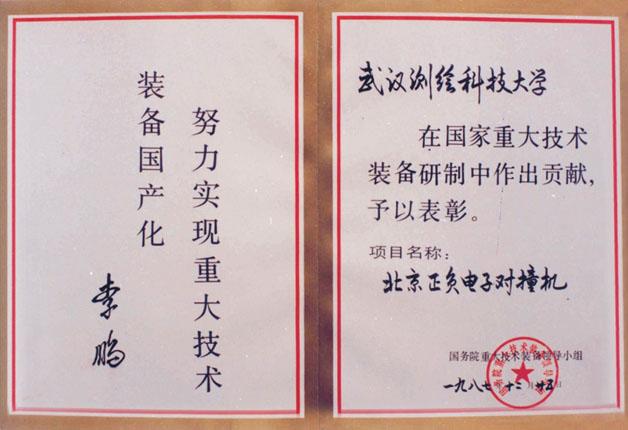 努力实现重大技术
装备国产化
李鹏
武汉测绘科技大学
在国家重大技术
装备研制中作出贡献,
予以表彰。
项目名称:
北京正负电子对撞机
国务院重大技术装备领导小组
一九八七 十二月廿五日